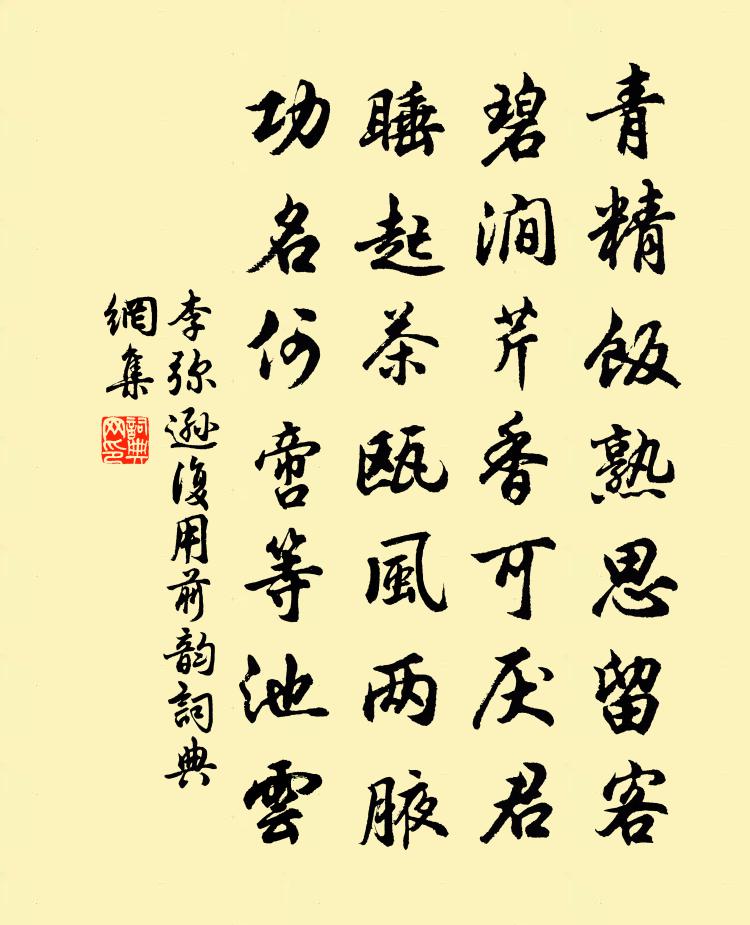 青精飯熟思留客
碧澗芹香可厌君
睡起茶瓯風两腋
功名何啻等池雲
李弥遜復用前韵詞典
網集
詞典
网印